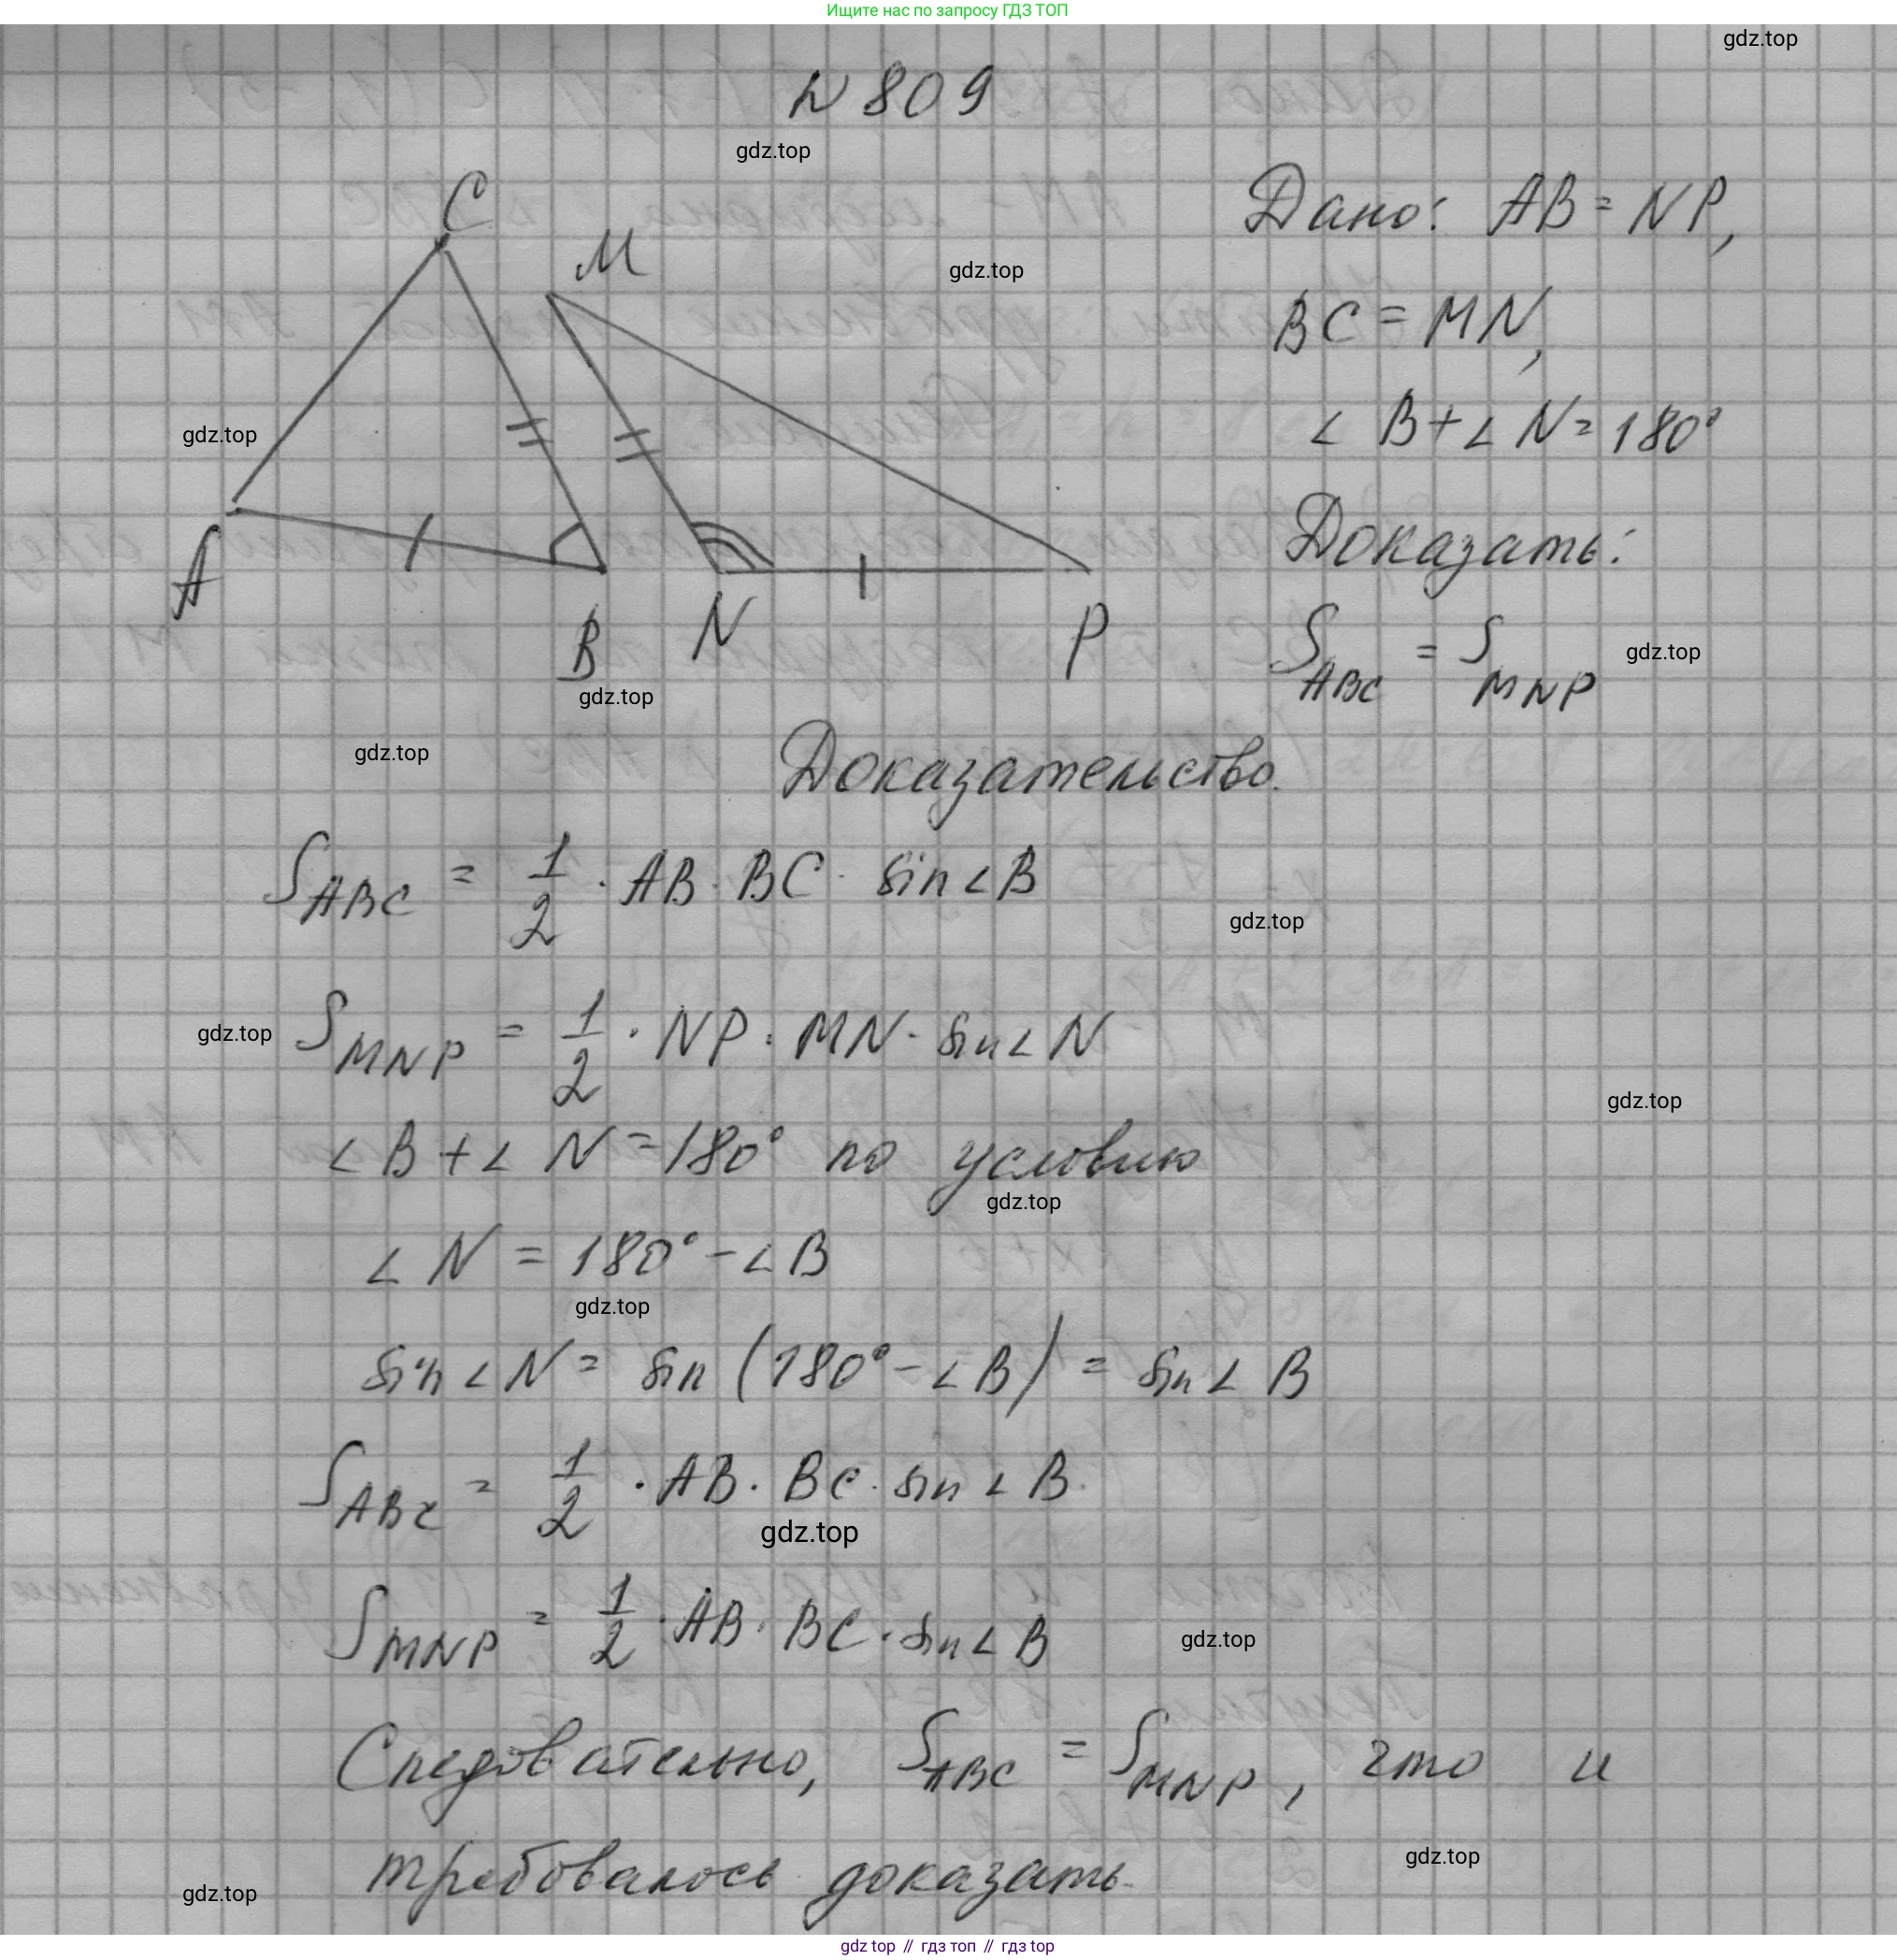 Ищите нас по запросу ГДЗ ТОП
gdz.top
N 809
gdz.top
C
M
gdz.top
Дано: AB = NP,
BC = MN,
gdz.top
∠ B + ∠ N = 180°
A
B
N
P
Доказать:
S ABC = S MNP
gdz.top
gdz.top
gdz.top
Доказательство.
S ABC = 1/2 · AB · BC · sin ∠ B
gdz.top
gdz.top
S MNP = 1/2 · NP · MN · sin ∠ N
gdz.top
∠ B + ∠ N = 180° по условию
gdz.top
∠ N = 180° - ∠ B
gdz.top
sin ∠ N = sin (180° - ∠ B) = sin ∠ B
S ABC = 1/2 · AB · BC · sin ∠ B
gdz.top
S MNP = 1/2 · AB · BC · sin ∠ B
gdz.top
Следовательно, S ABC = S MNP, что и
требовалось доказать.
gdz.top
gdz.top
gdz top // гдз топ // гдз top